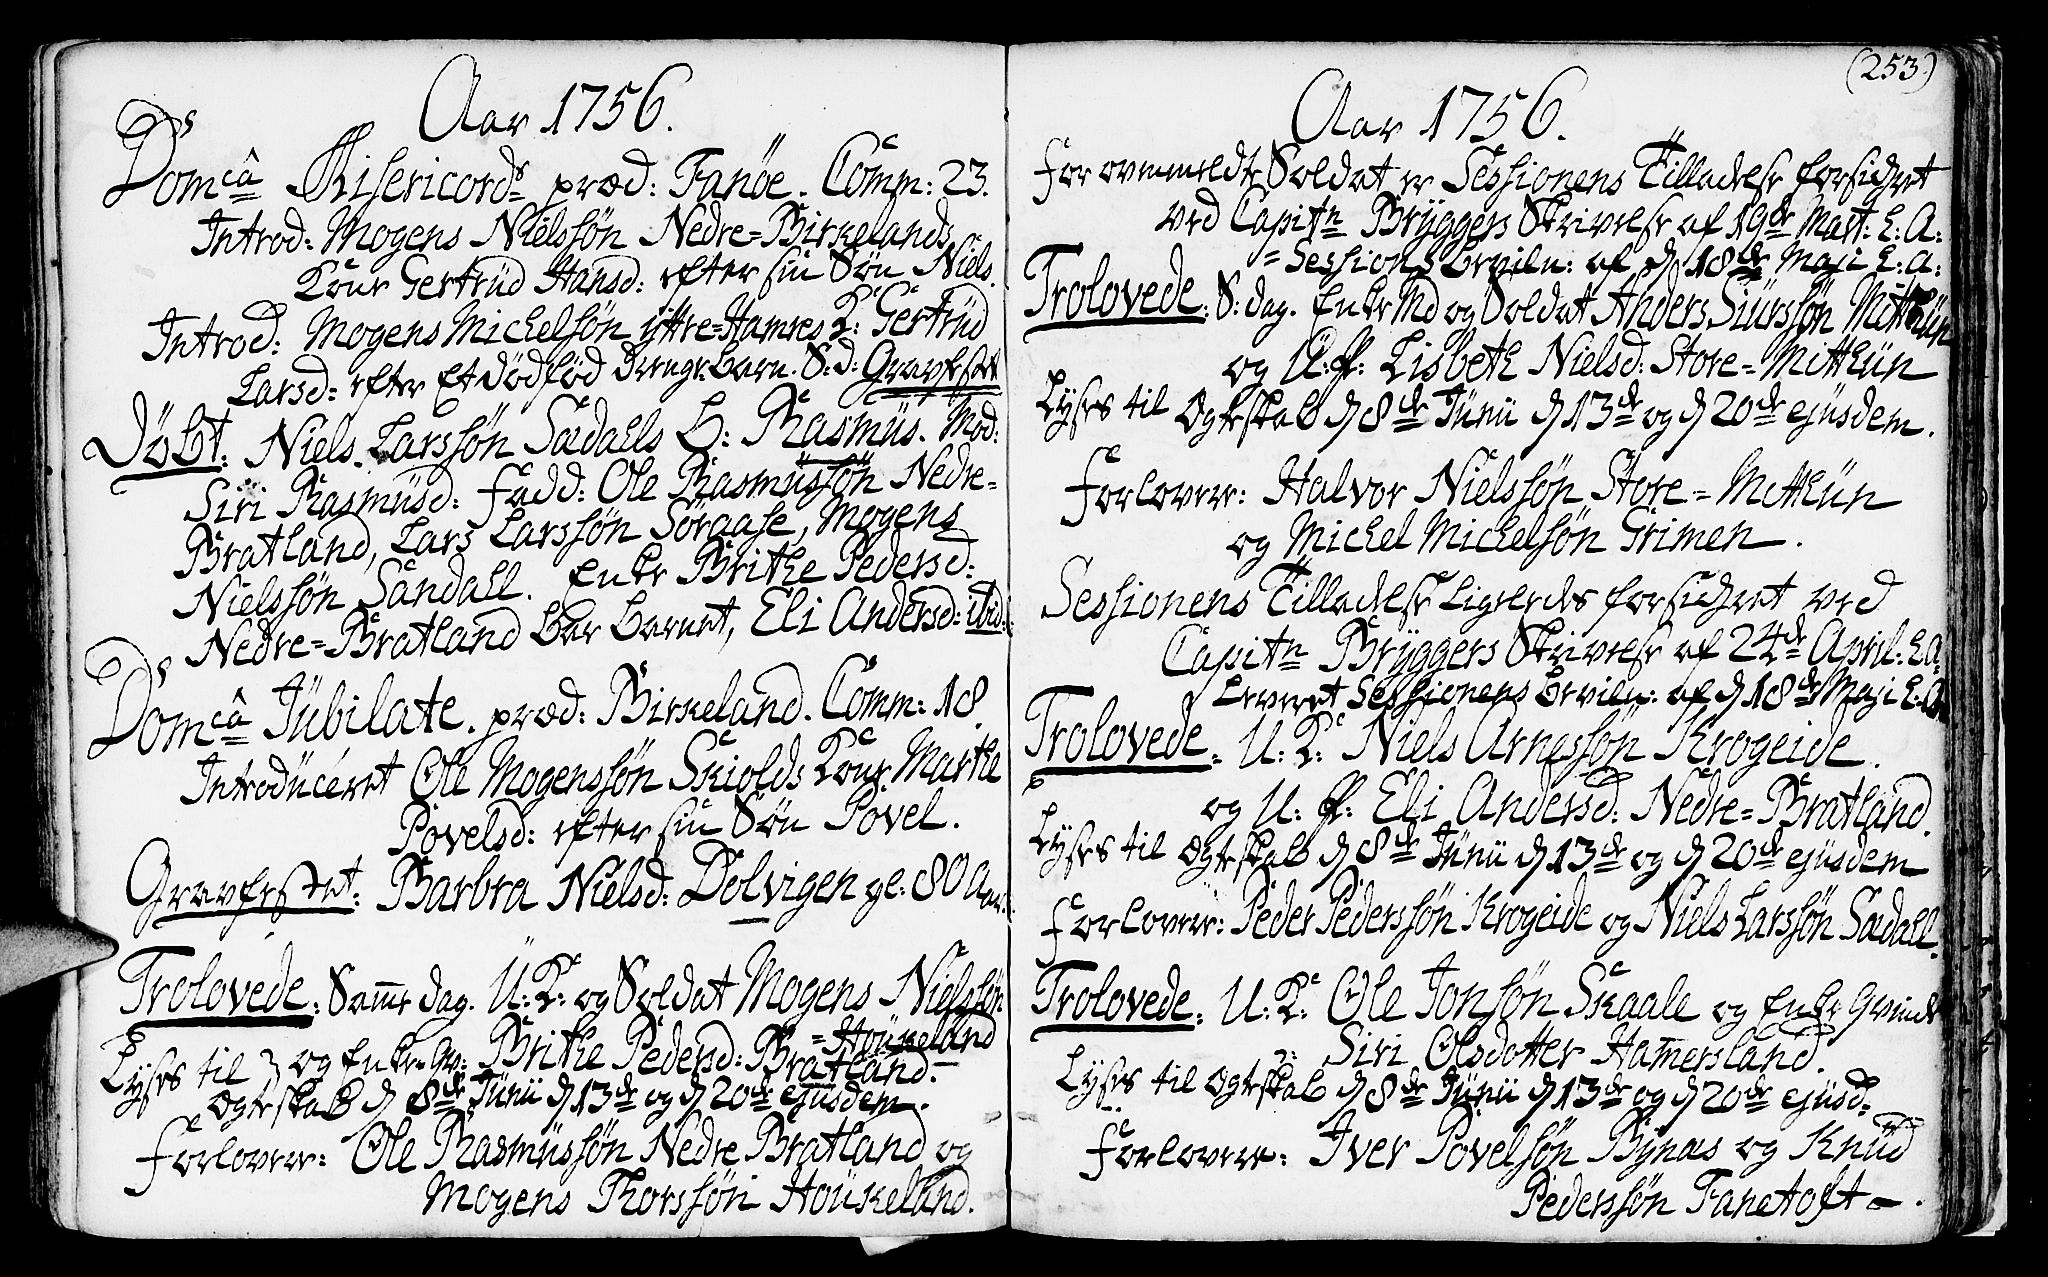 Aar 1756.
Domˢ câ Misericordˢ præd: Fanöe. Comm: 23.
Introd: Mogens Nielssön Nedre=Birkelands
Kone Gertrüd Hansd: efter sin Sön Niels.
Introd: Mogens Michelsön yttre=Hamres K: Gertrüd
Larsd: efter Et dödfød Drenge barn. S: d: Gravfestet
Döbt: Niels Larssön Sædahls b: Rasmüs. Mod:
Siri Rasmüsd: Fadd: Ole Rasmüssön Nedre=
Bratland, Lars Larssön Söraase, Mogens
Nielssön Sandahl. Enke Brithe Pedersd:
Nedre=Bratland bar barnet, Eli Andersd: ibid:
Domˢ câ Jübilate. præd: Birkeland. Comm: 18.
Introdüceret Ole Mogenssön Skiolds Kone Marthe
Povelsd: efter sin Sön Povel.
Gravfestet: Barbra Nielsd: Dolvigen ge: 80 Aar:
Trolovede: Samme dag. U: K: og Soldat Mogens Nielssön
=Houkeland
og Enke=Qv: Brithe Pedersd: Bratland.
Lyses til
Ogteskab d 8de Junii d 13de og d 20de ejusdem.
Forlovere: Ole Rasmüssön Nedre Bratland og
Mogens Thorssön Houkeland.
(253)
Aar 1756.
For ovenmeldte Soldat er Sessionens Tilladelse forsichret
ved Capitn Bryggers Skrivelse af 19de Mart: h: A:
=Sessions beviln: af d 18de Maji h: a:
Trolovede: S: dag. Enke Md og Soldat Anders Siurssön Mitthün
og U: P: Lisbeth Nielsd: Store=Mitthün
Lyses til Ogteskab d 8de Junii d 13de og d 20de ejusdem.
Forlovere: Halvor Nielssön Store=Mitthün
og Michel Michelsön Grimen.
Sessionens Tilladelse Ligeledes forsichret ved
Capitn Bryggers Skrivelse af 24de April: h: a:
Leveret Sessionens beviln: af d 18de Maji h: a:
Trolovede: U: K: Niels Arnessön Krogeide.
og U: P: Eli Andersd: Nedre=Bratland.
Lyses til Ogteskab d 8de Junii d 13de og d 20de ejusdem
Forlovere: Peder Pederssön Krogeide og Niels Larssön Sædahl.
Trolovede: U: K: Ole Jonsön Skaale og Enke Qvinde
Siri Olsdotter Hamersland.
Lyses til Ogteskab d 8de Junii d 13de og d 20de ejusd=
Forlovere: Iver Povelsön Bynæs og Knüd
Pederssön Fanetoft.